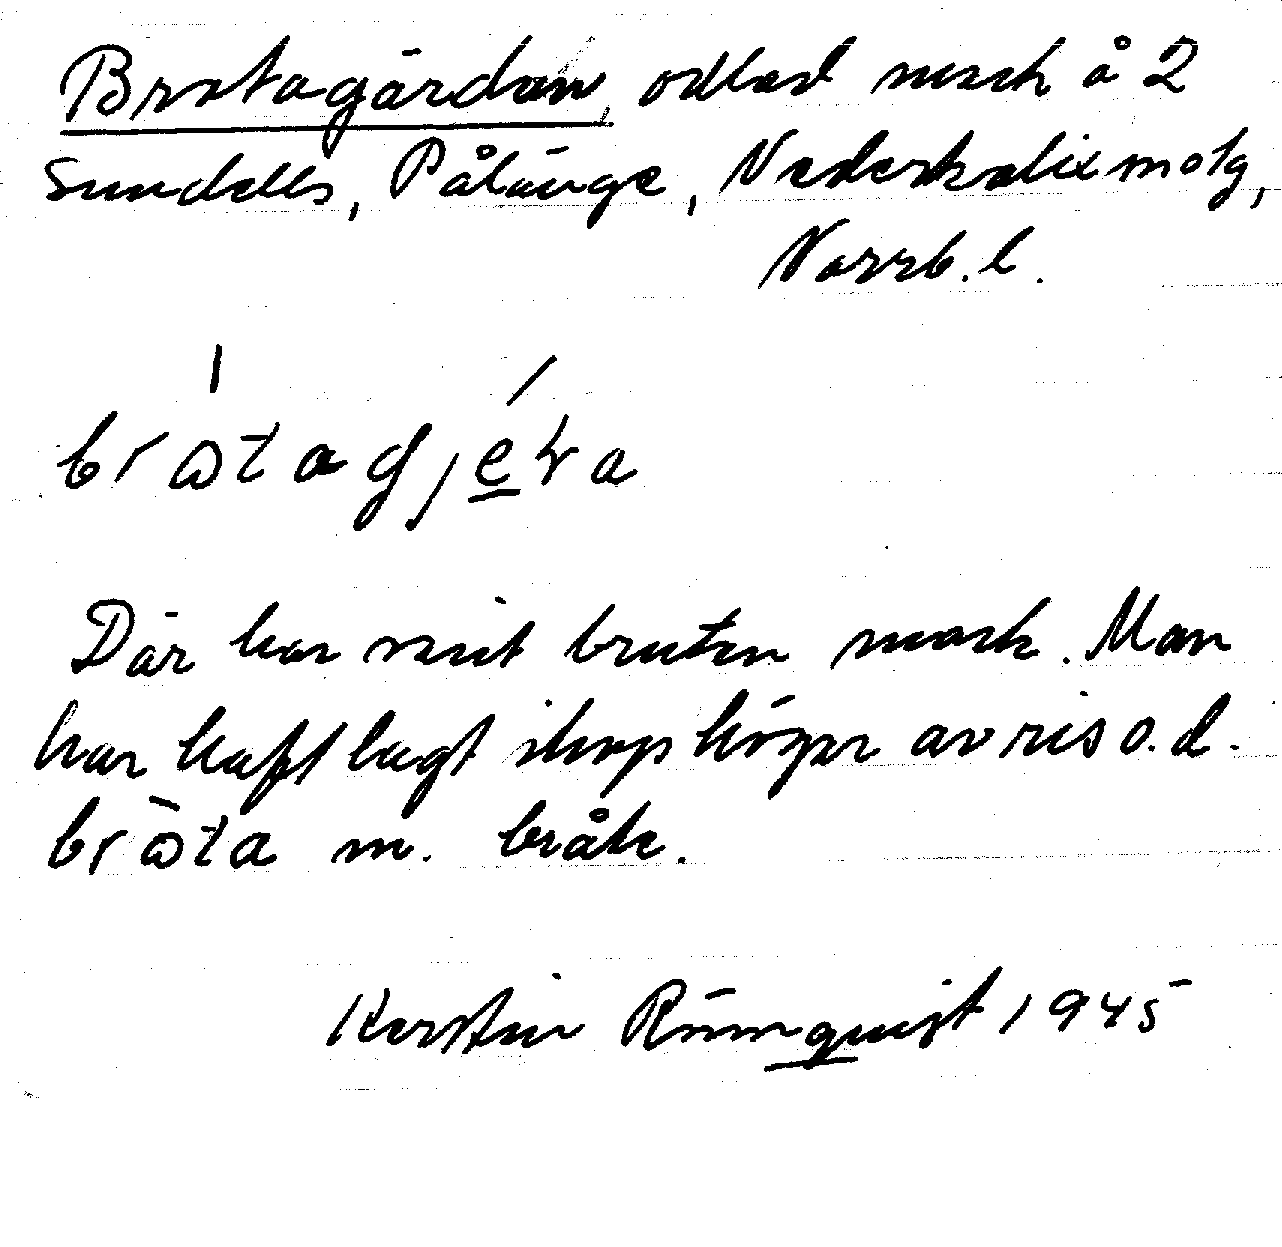 Brotagärdan, odlad mark å 2
Sundells, Pålänge, Nederkalix motg,
Norrb. l.
brωtagjéra
Där har varit bruten mark. Man
har haft lagt ihop högar av ris o.d.
brωta m. bråte.
Kerstin Rönnquist 1945